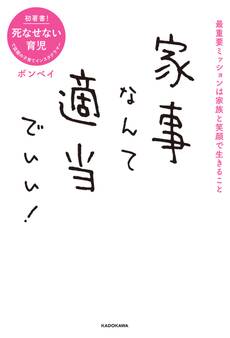 最重要ミッションは家族と笑顔で生きること
初著書!
死なせない
育児
ボンベイ
家事
なんて
適当
でいい!
KADOKAWA